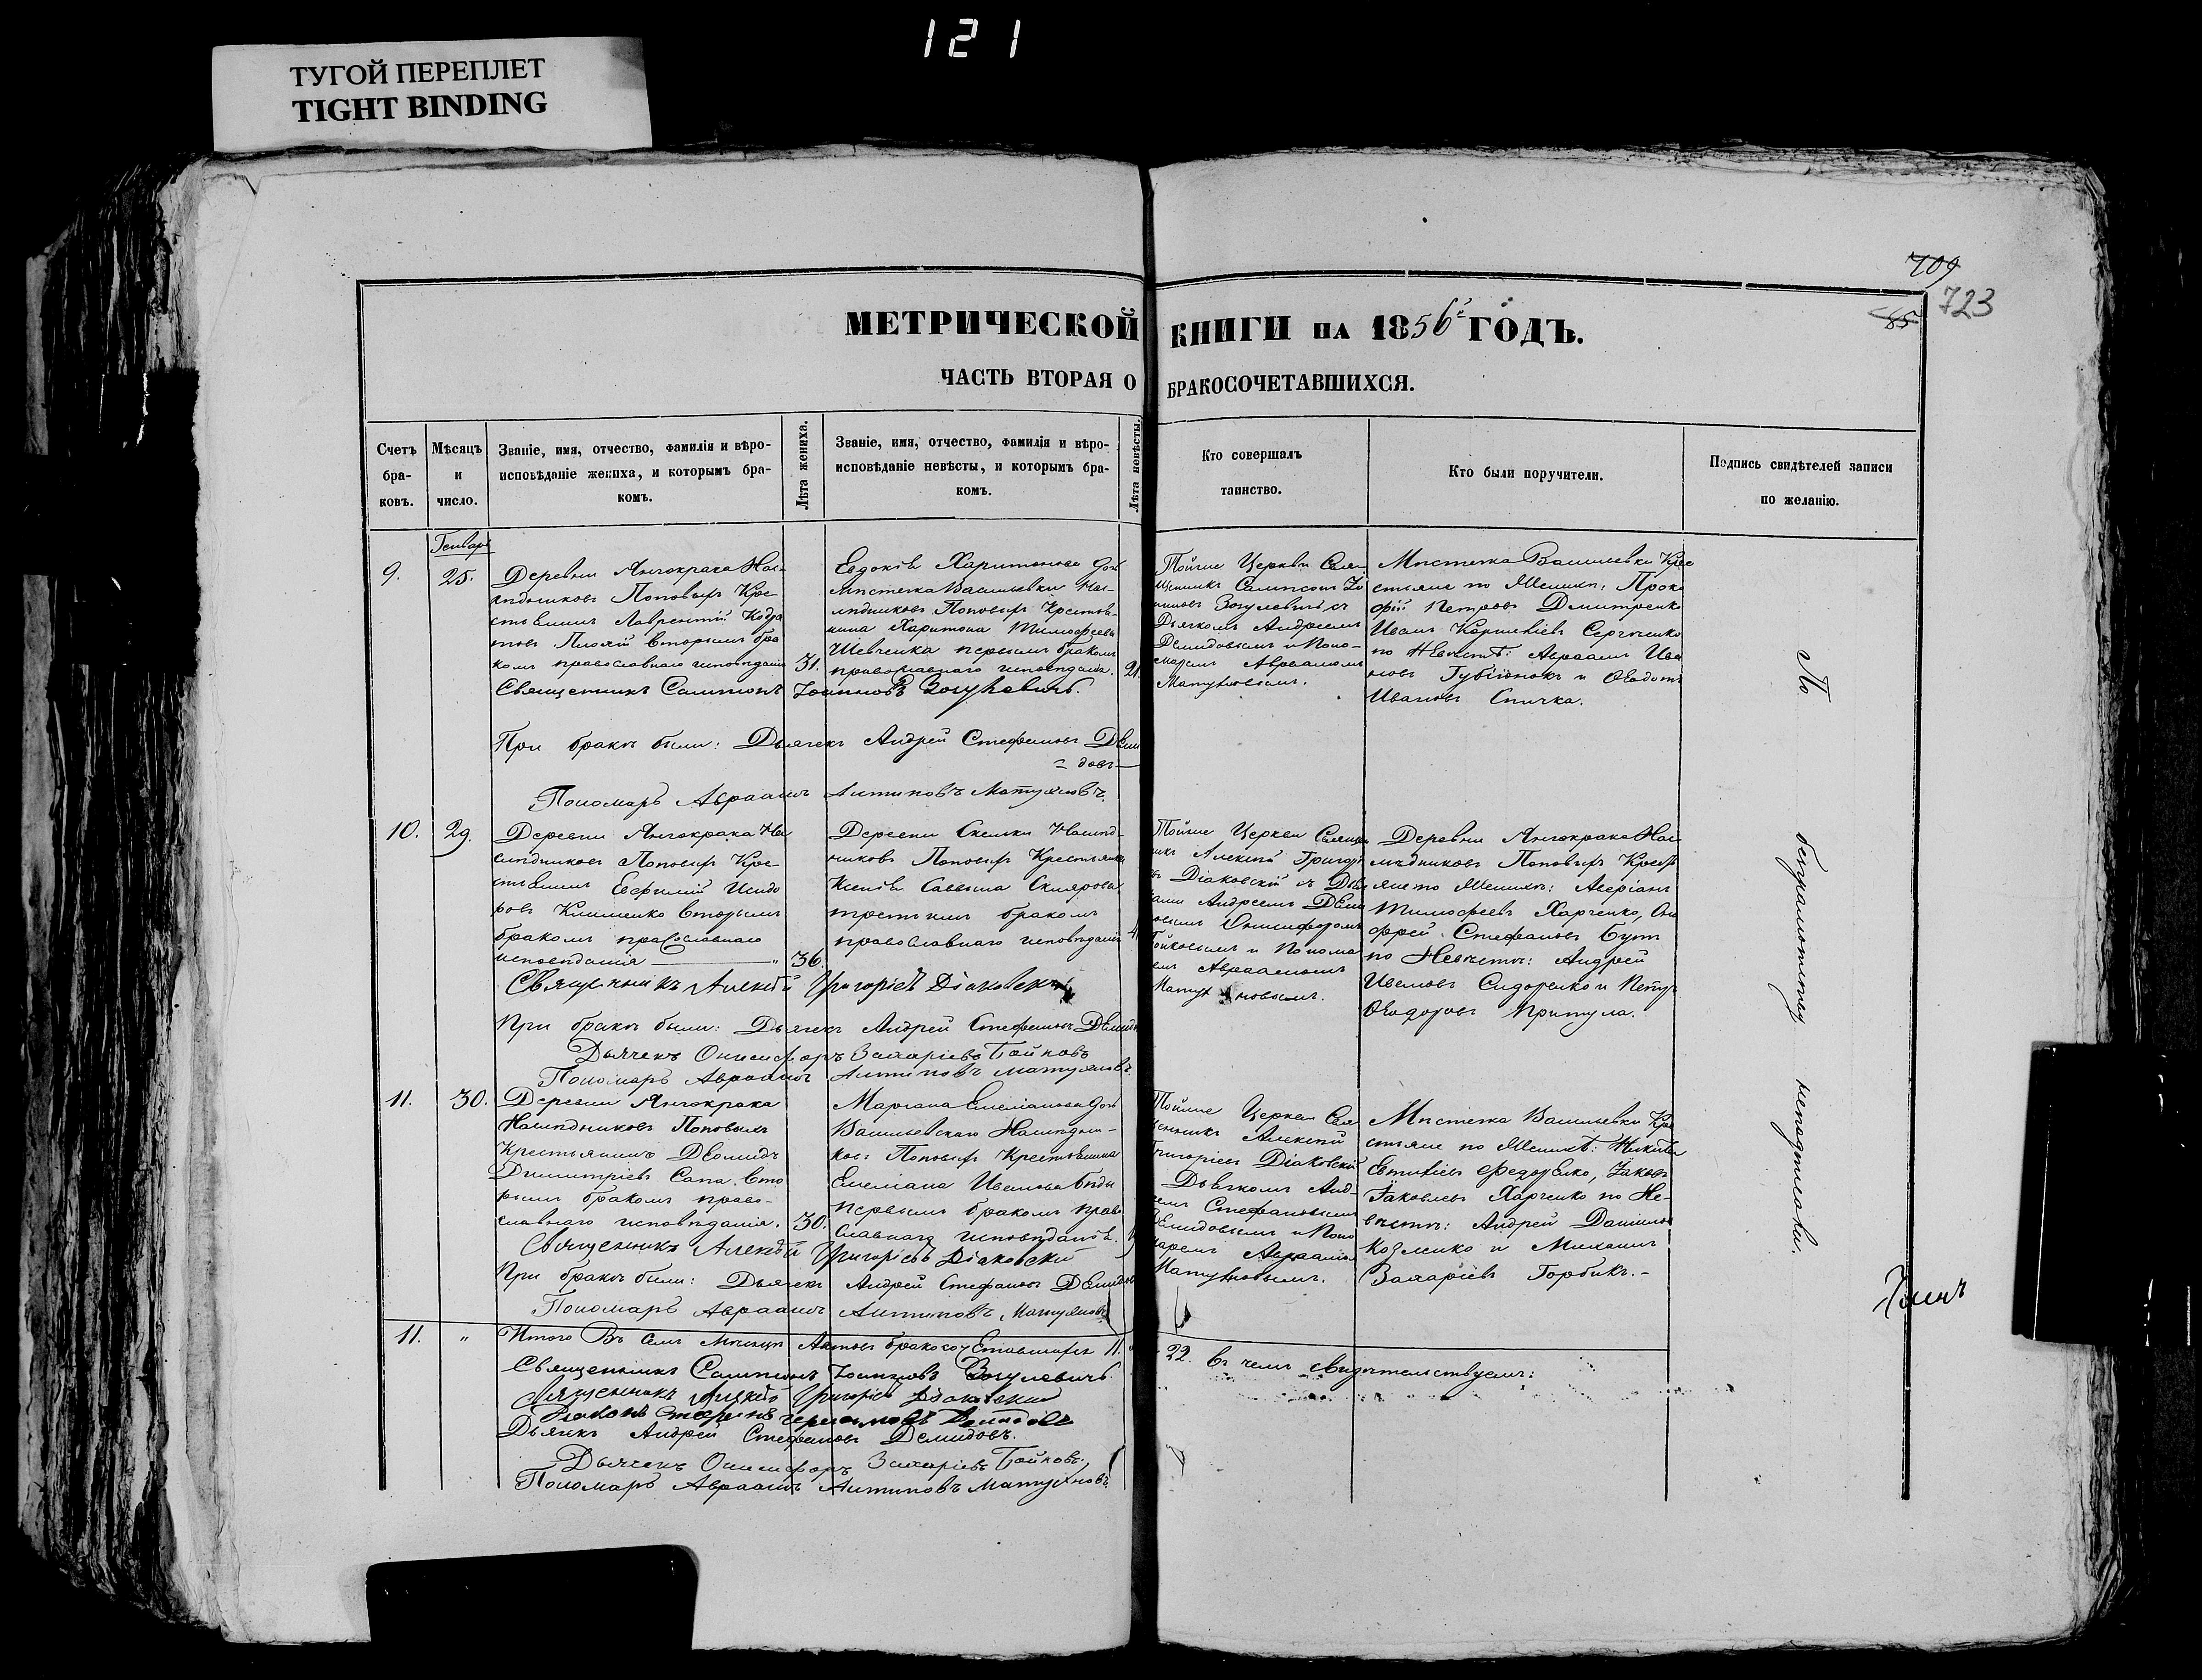 121
ТУГОЙ ПЕРЕПЛЕТ
TIGHT BINDING
709
723
85
МЕТРИЧЕСКОЙ КНИГИ НА 1856й ГОДЪ.
ЧАСТЬ ВТОРАЯ О БРАКОСОЧЕТАВШИХСЯ.
Счетъ бра-ковъ.
Мѣсяцъ и число.
Званіе, имя, отчество, фамилія и вѣро-
исповѣданіе жениха, и которымъ бра-
комъ.
Лѣта жениха.
Званіе, имя, отчество, фамилія и вѣро-
исповѣданіе невѣсты, и которымъ бра-
комъ.
Лѣта невѣсты.
Кто совершалъ
таинство.
Кто были поручители.
Подпись свидѣтелей записи
по желанію.
Генварь
9.
25.
Деревни Янчокрака Нас-
лѣдниковъ Поповыхъ Кре-
стьянинъ Лаврентій Кодра
товъ вторымъ бра
комъ православнаго исповѣданія
31.
Евдокія Харитонова дочь
Мѣстечка Васильевки Нас-
лѣдниковъ Поповыхъ Крестья-
нина Харитона Тимофеева
Шевченка первымъ бракомъ
православнаго исповѣданія.
21.
Тойже Церкви Свя-
щенникъ Сампсонъ Іо
анновъ Зосулевичъ съ
Дьячкомъ Андреемъ
Демидовымъ и Поно-
маремъ Авраамомъ
Матуяновымъ.
Мѣстечка Васильевки Кре
стьяне по Женихѣ: Проко
фій Петровъ Дмитренко
Иванъ Корніевъ Сергіенко
по Невѣстѣ: Авраамъ Ива
новъ и Ѳедотъ
Ивановъ Спичка.
Священникъ Сампсонъ Іоанновъ Зосулевичъ.
При бракѣ были: Дьячекъ Андрей Стефановъ Деми
= довъ
Пономарь Авраамъ Антиповъ Матуяновъ.
10.
29.
Деревни Янчокрака На
слѣдниковъ Поповыхъ Кре-
стьянинъ Евфимій Исидо
ровъ Клименко вторымъ
бракомъ православнаго
исповѣданія
36.
Деревни Скельки Наслѣд-
никовъ Поповыхъ Крестьянка
Ксенія Саввина Склярова
третьимъ бракомъ
православнаго исповѣданія
Тойже Церкви Священ
никъ Алексѣй Григорі
въ Діаковскій съ Дья
ками Андреемъ Деми
довымъ Онисифоромъ
Бойковымъ и Понома
емъ Авраамомъ
Матуяновымъ.
Деревни Янчокрака Нас
лѣдниковъ Поповыхъ Кресть
яне по Женихѣ: Аверіанъ
Тимофеевъ Харченко, Они
фрей Стефановъ Бутъ
по Невѣстѣ: Андрей
Ивановъ Сидоренко и Петръ
Ѳеодоровъ Притула.
Священникъ Алексѣй Григоріевъ Діаковскій
При бракѣ были: Дьячекъ Андрей Стефановъ Демидо
Дьячекъ Онисифоръ Захаріевъ Бойковъ
Пономарь Авраамъ Антиповъ Матуяновъ.
11.
30.
Деревни Янчокрака
Наслѣдниковъ Поповыхъ
Крестьянинъ Деомидъ
Димитріевъ Сапа. вто
рымъ бракомъ право-
славнаго исповѣданія.
30.
Маріана Емеліанова дочь
Васильевскаго Наслѣдни-
ковъ Поповыхъ Крестьянина
Емеліана Иванова
первымъ бракомъ право
славнаго исповѣданія.
Тойже Церкви Свя
щенникъ Алексѣй
Григоріевъ Діаковскій
Дьячкомъ Анд-
емъ Стефановымъ
Демидовымъ и Поно
маремъ Авраамо
Матуяновымъ.
Мѣстечка Васильевки Кре
стьяне по Женихѣ: Никита
Евтихіевъ Федоренко, Іаковъ
Іаковлевъ Харченко по Не-
вѣстѣ: Андрей Даніиловъ
Козленко и Михаилъ
Захаріевъ Горбикъ.-
Священникъ Алексѣй Григоріевъ Діаковскій
При бракѣ были: Дьячекъ Андрей Стефановъ Демидовъ
Пономарь Авраамъ Антиповъ Матуяновъ
11.
"
Итого Въ семъ Мѣсяцѣ Актовъ бракосочетавшихся 11.
22. въ чемъ свидѣтельствуемъ:
Священникъ Сампсонъ Іоанновъ Зосулевичъ
Священникъ Алексѣй Григоріевъ Діаковскій
Дьячекъ Андрей Стефановъ Демидовъ.
Дьячекъ Онисифоръ Захаріевъ Бойковъ.
Пономарь Авраамъ Антиповъ Матуяновъ.
По безграмотству неподписали.